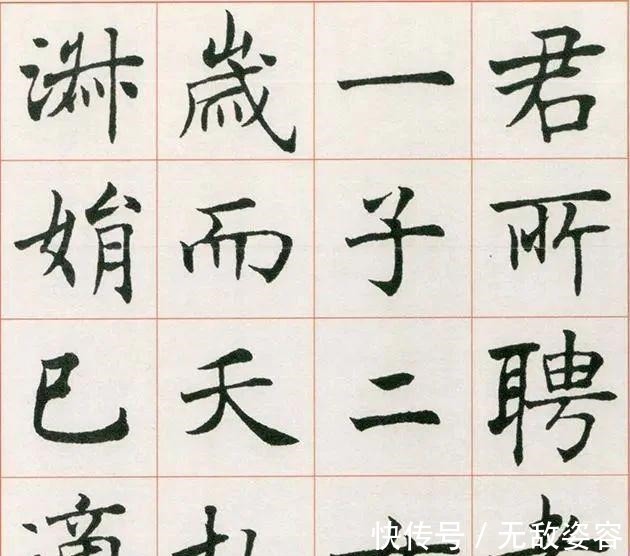 君所聘
一子二
歲而夭
淑娟已
快传号 / 无敌姿容